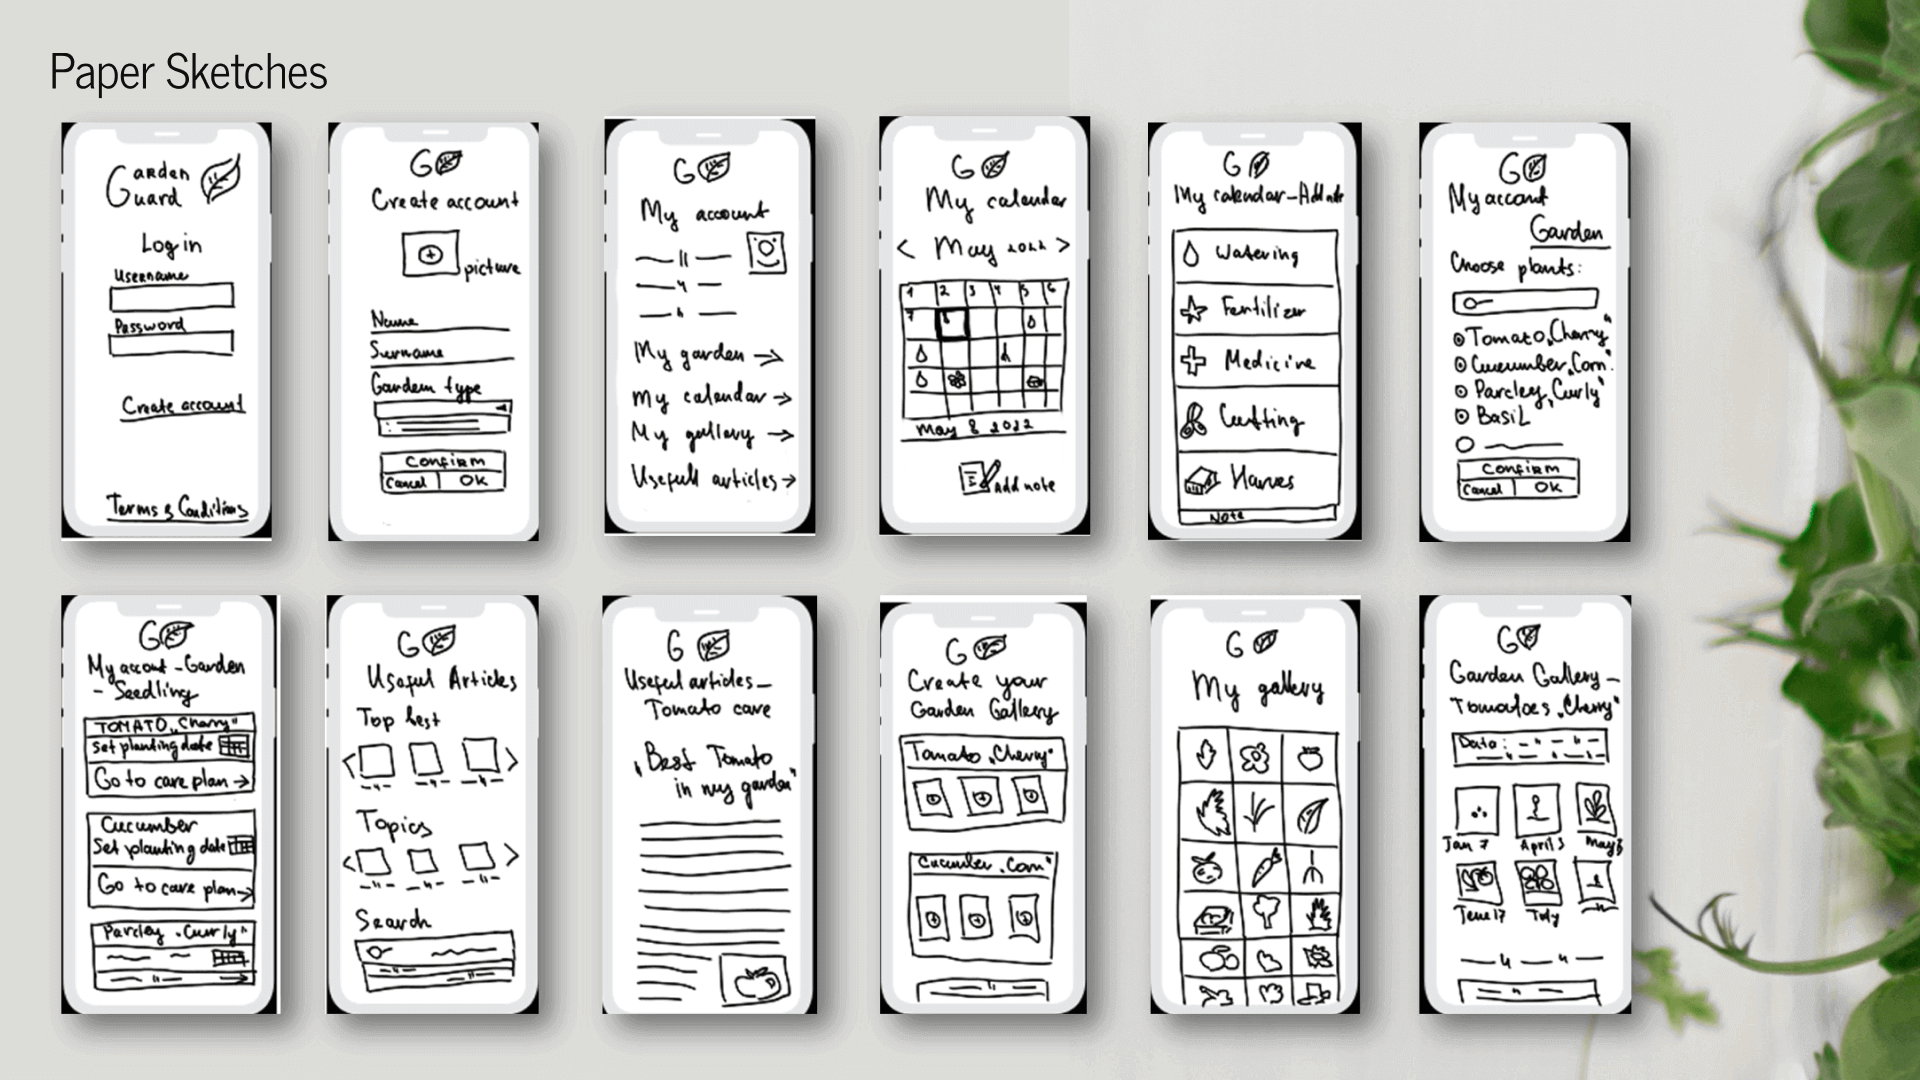 Paper Sketches
Garden
Guard
Log in
Username
Password
Create account
Terms & Conditions
G
Create account
picture
Name
Surname
Garden type
Confirm
Cancel OK
G
My account
My garden →
My calendar →
My gallery →
Usefull articles →
G
My calendar
< May 2022 >
1 2 3 4 5 6
7 8
May 8 2022
Add note
G
My calendar - Add note
Watering
Fertilizer
Medicine
Cutting
Harves
Note
G
My accont
Garden
Choose plants:
Tomato „Cherry"
Cucumber „Corn"
Parcley „Curly"
Basil
Confirm
Cancel OK
G
My accont - Garden
- Seedling
TOMATO „Cherry"
Set planting date
Go to care plan →
Cucumber
Set planting date
Go to care plan →
Parcley „Curly"
G
Useful Articles
Top best
Topics
Search
G
Useful articles -
Tomato care
„Best Tomato
in my garden"
G
Create your
Garden Gallery
Tomato „Cherry"
Cucumber „Corn"
G
My gallery
G
Garden Gallery -
Tomatoes „Cherry"
Data:
Jan 7 April 3 May 8
June 17 July